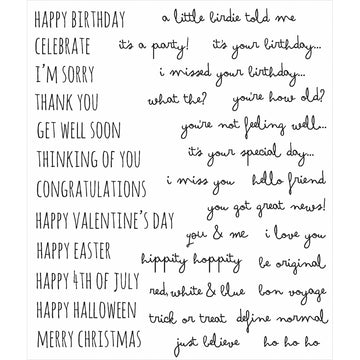 HAPPY BIRTHDAY
a little birdie told me
CELEBRATE
it's a party!
it's your birthday...
I'M SORRY
i missed your birthday...
THANK YOU
what the?
you're how old?
GET WELL SOON
you're not feeling well...
THINKING OF YOU
it's your special day...
CONGRATULATIONS
i miss you
hello friend
you got great news!
HAPPY VALENTINE'S DAY
you & me
i love you
HAPPY EASTER
hippity hoppity
be original
HAPPY 4TH OF JULY
red, white & blue
bon voyage
HAPPY HALLOWEEN
trick or treat
define normal
MERRY CHRISTMAS
just believe
ho ho ho